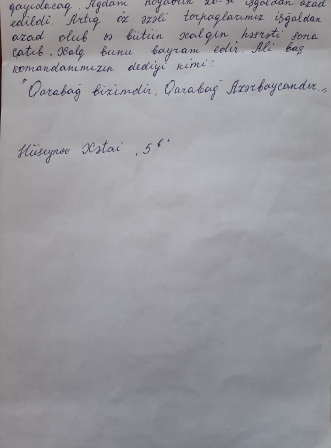 qayıdacaq. Ağdam noyabrın 20-si işğaldan azad
edildi. Artıq öz əzəli torpaqlarımız işğaldan
azad olub və bütün xalqın həsrəti sona
çatıb. Xalq bunu bayram edir. Ali baş
komandanımızın dediyi kimi:
"Qarabağ bizimdir, Qarabağ Azərbaycandır„
Hüseynov Xətai, 5ᵇ"